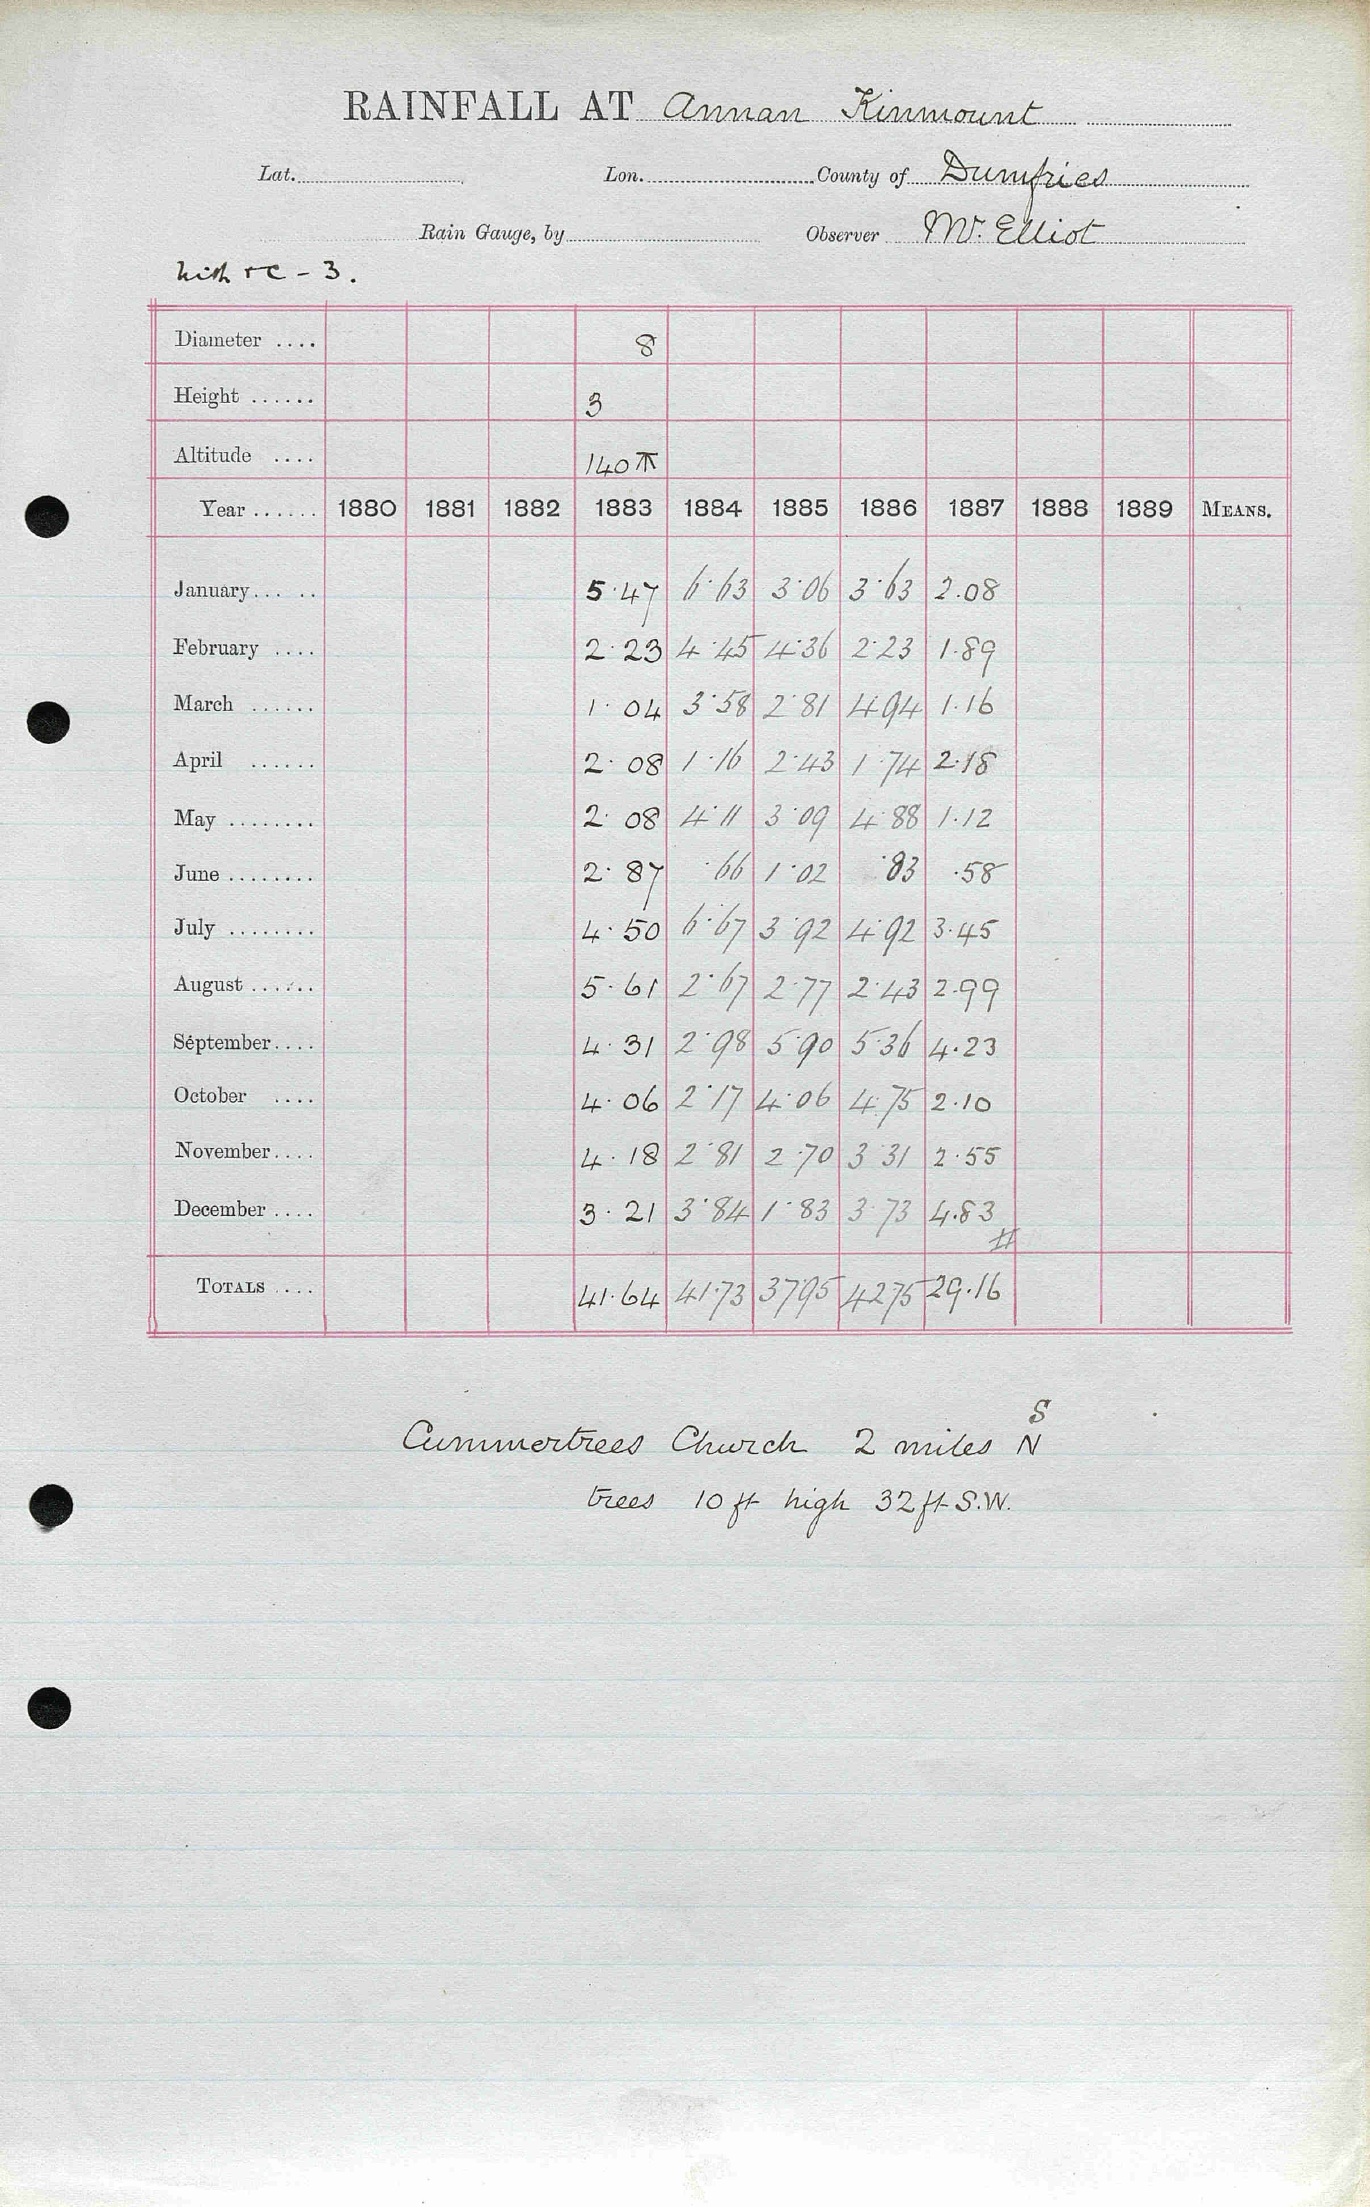 RAINFALL AT Annan Kinmount
Lat. Lon. County of Dumfries
Rain Gauge, by Observer Mr. Elliot
- 3.
Diameter .... 8
Height ...... 3
Altitude .... 140
Year ...... 1880 1881 1882 1883 1884 1885 1886 1887 1888 1889 MEANS.
January... .. 5.47 6.63 3.06 3.63 2.08
February .... 2.23 4.45 4.36 2.23 1.89
March ...... 1.04 3.58 2.81 4.94 1.16
April ...... 2.08 1.16 2.43 1.74 2.18
May ........ 2.08 4.11 3.09 4.88 1.12
June ........ 2.87 .66 1.02 .83 .58
July ........ 4.50 6.67 3.92 4.92 3.45
August ...... 5.61 2.67 2.77 2.43 2.99
September.... 4.31 2.98 5.90 5.36 4.23
October .... 4.06 2.17 4.06 4.75 2.10
November.... 4.18 2.81 2.70 3.31 2.55
December .... 3.21 3.84 1.83 3.73 4.83
#
TOTALS .... 41.64 41.73 3795 4275 29.16
S
Cummertrees Church 2 miles N
trees 10 ft high 32 ft S.W.